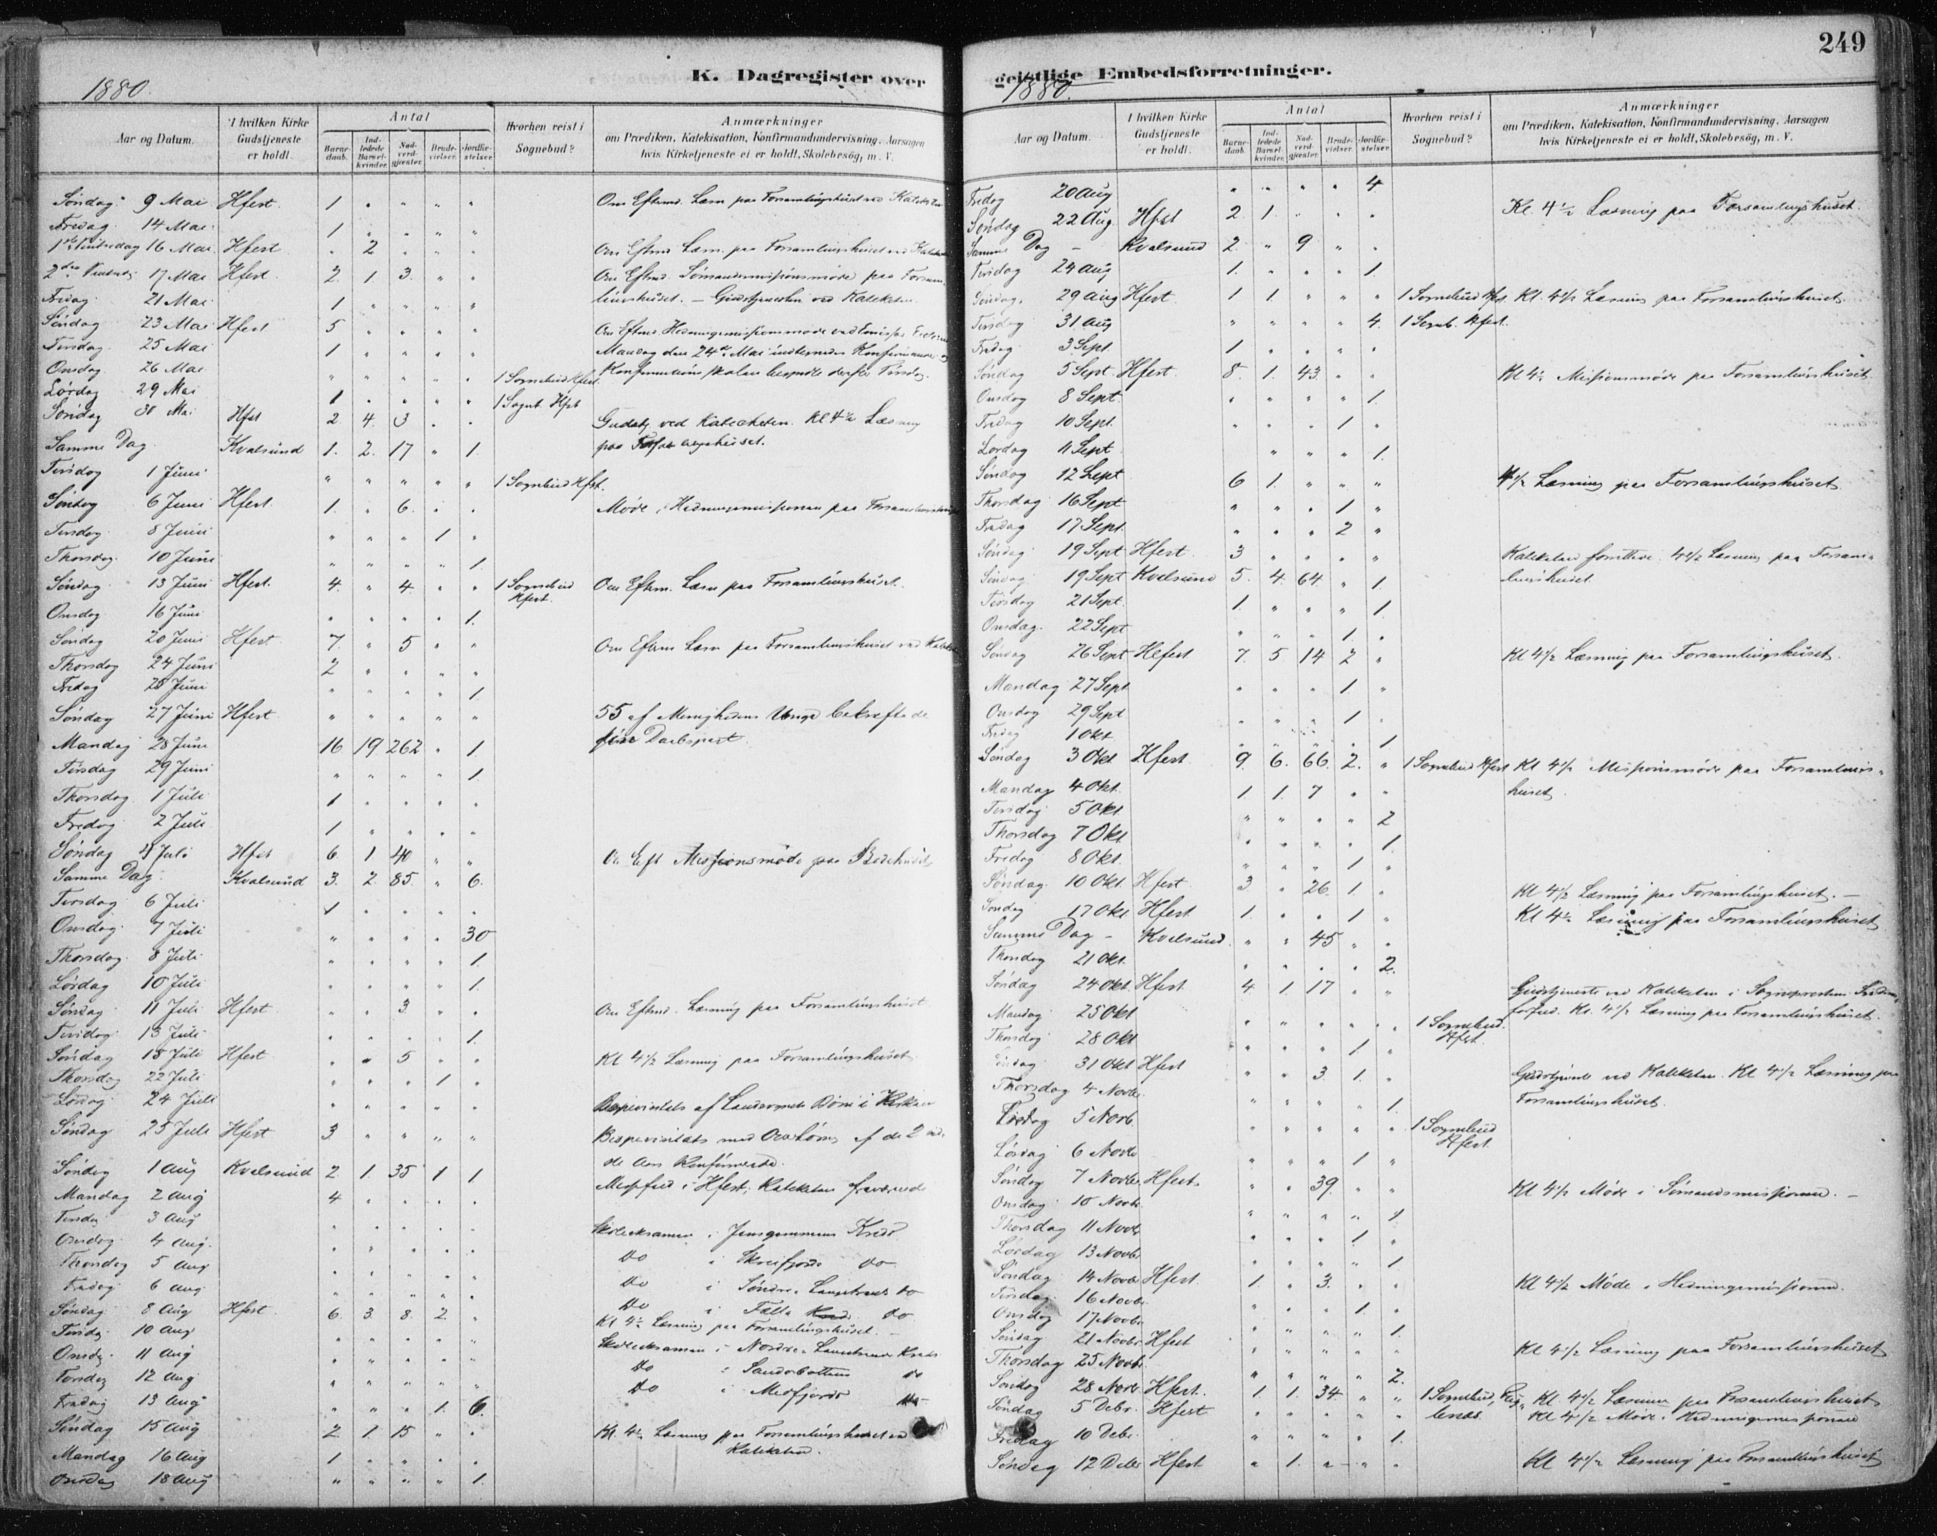 249
K. Dagregister over geistlige Embedsforretninger.
1880.
Aar og Datum. I hvilken Kirke Gudstjeneste er holdt. Antal Barnedaab. Indledede Barselkvinder. Nadverdgjester. Brudevielser. Jordfæstelser. Hvorhen reist i Sognebud? Anmærkninger om Prædiken, Katekisation, Konfirmandundervisning, Aarsagen hvis Kirketjeneste ei er holdt, Skolebesøg, m. V.
Søndag 9 Mai Hfest. 1 " " " " Om Eftmd. Læsn paa Forsamlingshuset ved Kateketen
Fredag 14 Mai 1 " " " "
1ste Pintsedag 16 Mai Hfest " 2 " " " Om Eftmd Læsn. paa Forsamlingshuset ved
2den 17 Mai Hfest. 2. 1 3. " " Om Eftmd. Sømandsmissionsmøde paa Forsam-
Fredag 21 Mai 1 " " " " lingshuset. – Gudstjenesten ved Kateketen
Søndag 23 Mai Hfest 5 " " " " Om Eftmd. Hedningemissionsmøde ved
Tirsdag 25 Mai 1 " " " " Mandag den 24de Mai
Onsdag 26 Mai " " " " " 1 Sognebud Hfest.
Lørdag 29 Mai 1 " " " " 1 Sogneb. Hfst
Søndag 30 Mai Hfst 2 4. 3 " " Gudstj ved Katecheten. Kl 4½ Læsning
Samme Dag. Kvalsund 1. 2. 17 " 1. paa
Tirsdag 1 Juni " " " " " 1 Sognebud Hfst.
Søndag 6 Juni Hfest 1. " 6. " " Møde i Hedningemissionen paa
Tirsdag 8 Juni " " " 1 "
Thorsdag 10 Juni " " " " 1
Søndag 13 Juni Hfest. 4. " 4. " " 1 Sognebud Hfest. Om Eftm. Læsn paa Forsamlingshuset.
Onsdag 16 Juni " " " " 1.
Søndag 20 Juni Hfest. 7. " 5 " " Om Eftm Læsn paa Forsamlingshuset ved
Thorsdag 24 Juni 2 " " " "
Fredag 25 Juni " " " " 1.
Søndag 27 Juni Hfest " " " " " 55 af Menighedens Unge bekræftede
Mandag 28 Juni 16 19 262 " 1 sin Daabspagt.
Tirsdag 29 Juni " " " " 1
Thorsdag 1 Juli 1 " " " "
Fredag 2 Juli 1 " " " "
Søndag 4 Juli Hfest 6. 1 40 " " Om Eft Missionsmøde paa Bedehuset
Samme Dag. Kvalsund 3. 2. 85. " 6.
Tirsdag 6 Juli 1 " " " "
Onsdag 7 Juli " " " " 30
Thorsdag 8 Juli " " " " 1.
Lørdag 10 Juli " " " " 1
Søndag 11 Juli Hfest " " 3 " " Om Eftmd. Læsning paa Forsamlingshuset
Tirsdag 13 Juli " " " " 1.
Søndag 18 Juli Hfest " " 5 " " Kl 4½ Læsning paa Forsamlingshuset
Thorsdag 22 Juli " " " 1 "
Lørdag 24 Juli " " " " " Bispevisitats af
Søndag 25 Juli Hfest 3 " " " " Bispevisitats med
Søndag 1 Aug Kvalsund 2. 1. 35 1 1
Mandag 2 Aug 4. " " " "
Tirsdag 3 Aug " " " " " Skoleeksamen i
Onsdag 4 Aug. " " " " " do i
Thorsdag 5 Aug " " " " " do i Søndre do
Fredag 6 Aug " " " " " do i do
Søndag 8 Aug Hfest. 6. 3. 8 2 " Kl 4½ Læsning paa Forsamlingshuset. –
Tirsdag 10 Aug " " " " " Skoleeksamen i Nordre
Onsdag 11 Aug " " " " " do i do
Torsdag 12 Aug " " " " " do i do
Fredag 13 Aug " " " 1. 6.
Søndag 15 Aug 2 1 15 " " Kl. 4½ Læsning paa Forsamlingshuset ved Kateketen.
Mandag 16 Aug 1 " " " "
Onsdag 18 Aug " " " " 1.
1880.
Aar og Datum. I hvilken Kirke Gudstjeneste er holdt. Antal Barnedaab. Indledede Barselkvinder. Nadverdgjester. Brudevielser. Jordfæstelser. Hvorhen reist i Sognebud? Anmærkninger om Prædiken, Katekisation, Konfirmandundervisning, Aarsagen hvis Kirketjeneste ei er holdt, Skolebesøg, m. V.
Fredag 20 Aug " " " " 4
Søndag 22 Aug. Hfest 2. 1. " " " Kl 4½ Læsning paa Forsamlingshuset.
Samme Dag – Kvalsund 2. " 9 " "
Tirsdag 24 Aug 1. " " " 1.
Søndag 29 Aug Hfest. 1 1. " " " 1 Sognebud Hfest Kl. 4½ Læsning paa Forsamlingshuset
Tirsdag 31 Aug " " " " 4. 1 Sogneb. Hfest.
Fredag 3 Sept. 1 " " " "
Søndag 5 Sept Hfest. 8. 1. 43. " " Kl 4½ Missionsmøde paa Forsamlingshuset
Onsdag 8 Sept " " " " 1.
Fredag 10 Sept. " " " 1 "
Lørdag 11 Sept " " " " 1.
Søndag 12 Sept 6 1. " " " 4½ Læsning paa Forsamlingshuset
Thorsdag 16 Sept " " " 1 "
Fredag 17 Sept. " " " 2 "
Søndag 19 Sept Hfest. 3 " " " " Kateketen forrettede. 4½ Læsning paa Forsam-
Søndag 19 Sept Kvalsund 5. 4. 64. " 1. lingshuset.
Tirsdag 21 Sept. 1. " " " 1
Onsdag 22 Sept " " " 1. "
Søndag 26 Sept Hfest 7. 5 14 2 " Kl 4½ Læsning paa Forsamlingshuset.
Mandag 27 Sept " " " 1 "
Onsdag 29 Sept " " " 1. "
Fredag 1 Okt " " " " 1
Søndag 3 Okt Hfest. 9. 6. 66. 2. " 1 Sognebud Hfest Kl 4½ Missionsmøde paa Forsamlings-
Mandag 4 Okt. 1 1. 7 " " huset.
Tirsdag 5 Okt. " " " " 2
Thorsdag 7 Okt. " " " " 1.
Fredag 8 Okt. " " " 1 "
Søndag 10 Okt Hfest. 3. " 26. 1. " Kl 4½ Læsning paa Forsamlingshuset. –
Søndag 17 Okt Hfest 1. " " 1 " Kl 4½ Læsning paa Forsamlingshuset
Samme Dag – Kvalsund. " " 45 " "
Thorsdag 21 Okt. " " " " 2.
Søndag 24 Okt. Hfest. 4. 1. 17 " " Gudstjeneste ved Kateketen i Sognepresten
Mandag 25 Okt " " " " " 1 Sognebud. Hfest. forfud. Kl. 4½ Læsning paa Forsamlingshuset.
Thorsdag 28 Okt " " " 1 "
Søndag 31 Okt Hfest " " 3. 1. " Gudstjeneste ved Kateketen. Kl 4½ Læsning paa
Thorsdag 4 Novbr. " " " " 1. Forsamlingshuset.
Fredag 5 Novb. " " " " " 1 Sognebud Hfest.
Lørdag 6 Novbr " " " 1 "
Søndag 7 Novbr. Hfest. " " 39. " " Kl 4½ Møde i Sømandsmissionen. –
Onsdag 10 Novbr. " " " " 1.
Thorsdag 11 Novbr. " " " 1 "
Lørdag 13 Novbr. " " " " 1
Søndag 14 Novbr. Hfest. 1. " 3. " " Kl 4½ Møde i Hedningemissionen.
Tirsdag 16 Novbr. " " " 1. "
Onsdag 17 Novbr. " " " " 1.
Søndag 21 Novbr. Hfest " " " " " Kl 4½ Læsning paa Forsamlingshuset
Thorsdag 25 Novbr. " " " " 2.
Søndag 28 Novbr Hfest. 1 1. 34. " " 1 Sognebud, Kl 4½ Læsning paa Forsamlingshuset
Søndag 5 Debr. Hfest " " " " " Kl 4½ Møde i Hedningemissionen
Fredag 10 Debr. " " " " 1.
Søndag 12 Debr Hfest " 1. " " " Kl 4½ Læsning paa Forsamlingshuset